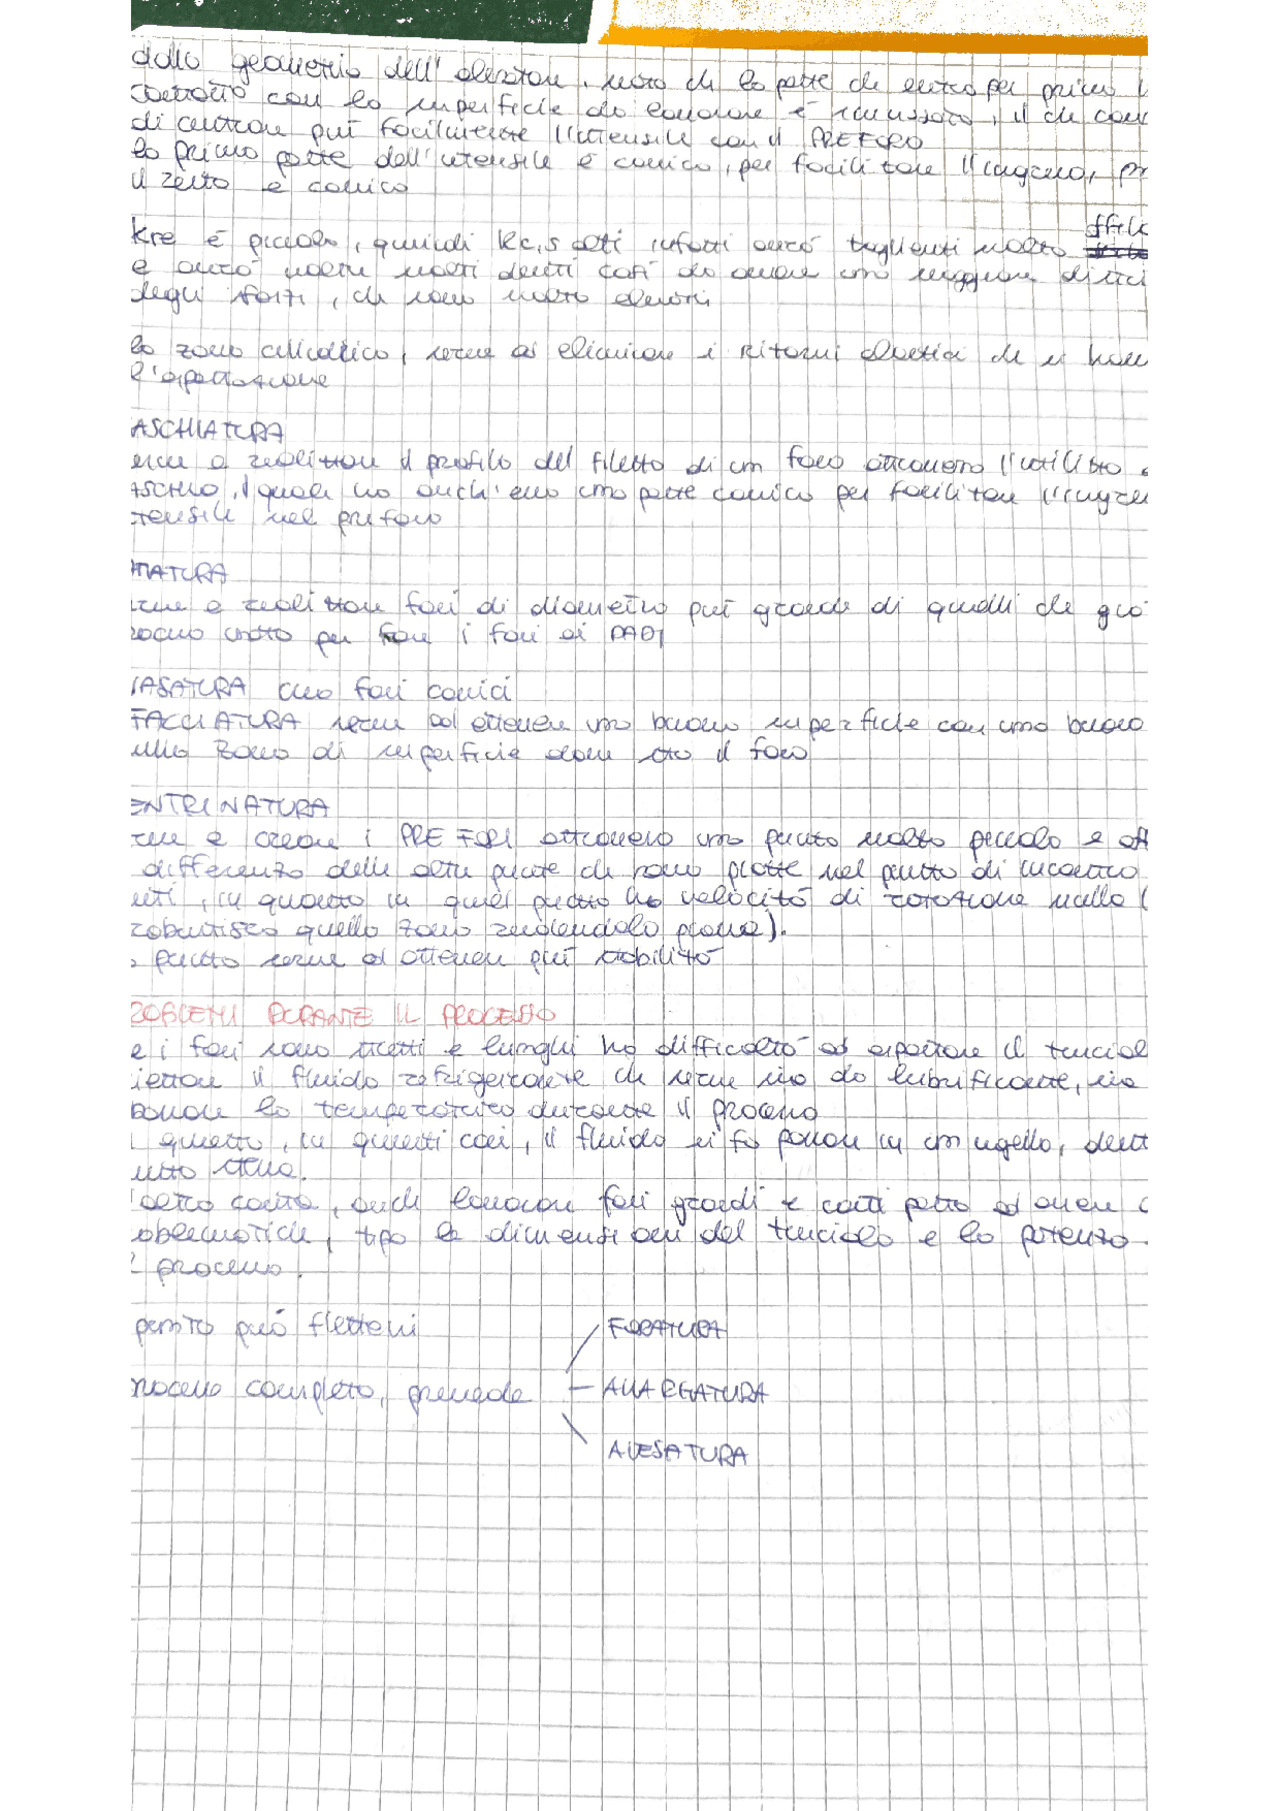 dalla geometria dell'alesatore, noto che la parte che entra per prima
contatto con la superficie da lavorare è smussata, il che
di centrare più facilmente l'utensile con il PREFORO
la prima parte dell'utensile è conica, per facilitare l'ingresso, 
il resto è conico
ffila
kre è piccolo, quindi kc,s alti infatti avrò taglienti molto
e avrò anche molti denti così da avere una maggiore
degli sforzi, che sono molto elevati
la zona cilindrica, serve ad eliminare i ritorni elastici che si
l'asportazione
ASCHIATURA
erve a realizzare il profilo del filetto di un foro attraverso l'utilizzo
ASCHIO, il quale ha anch'esso una parte conica per facilitare
tensile nel preforo
erve a realizzare fori di diametro più grande di quelli che già
per fare i fori di DADI
ASATURA creo fori conici
FACCIATURA serve ad ottenere una buona superficie con una buona
sulla zona di superficie dove sta il foro
ENTRINATURA
rve a creare i PRE FORI attraverso una punta molto piccola e
differenza delle altre punte che sono piatte nel punto di incontro
enti, in quanto in quel punto ho velocità di rotazione nulla (
robustisco quella zona rendendola piana).
a punta serve ad ottenere più stabilità
ROBLEMI DURANTE IL PROCESSO
e i fori sono stretti e lunghi ho difficoltà ad asportare il truciol
iettare il fluido refrigerante che serve sia da lubrificante, sia
bassare la temperatura durante il processo
questo, in questi casi, il fluido si fa passare in un ugello, dent
unta stessa.
'altro canto, anche lavorare fori grandi e corti porta ad avere
oblematiche, tipo le dimensioni del truciolo e la potenza
l processo.
punta può flettersi
FORATURA
rocesso completo, prevede
ALLARGATURA
ALESATURA